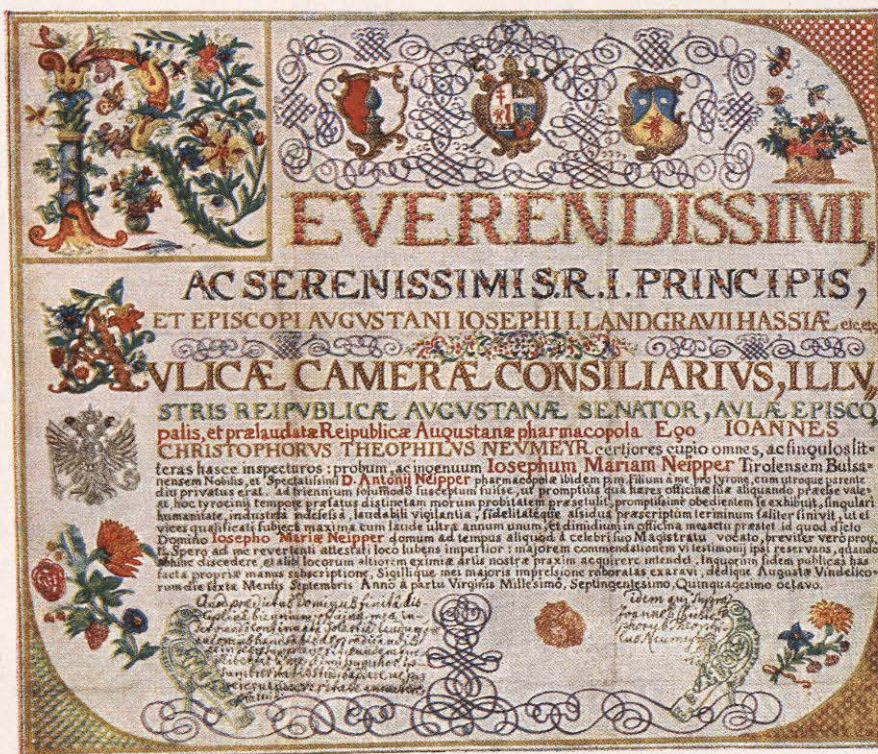 REVERENDISSIMI,
AC SERENISSIMI S.R.I. PRINCIPIS,
ET EPISCOPI AVGVSTANI IOSEPHI I. LANDGRAVII HASSIÆ etc. etc.
AVLICÆ CAMERÆ CONSILIARIVS, ILLV„
STRIS REIPVBLICÆ AVGVSTANÆ SENATOR, AVLÆ EPISCO„
palis, et prælaudatæ Reipublicæ Augustanæ pharmacopola Ego IOANNES
CHRISTOPHORVS THEOPHILVS NEVMEYR certiores cupio omnes, ac singulos lit„
teras hasce inspecturos: probum, ac ingenuum Iosephum Mariam Neipper Tirolensem Bulsa„
nensem Nobilis, et Spectatissimi D. Antonij Neipper pharmacopolæ ibidem p.m. filium à me pro tyrone, cum utroque parente
diu privatus erat, ad triennium solummodo susceptum fuisse, ut promptius quâ hæres officinæ suæ aliquando præesse vale„
at, hoc tyrocinij tempore præfatus distinctam morum probitatem præsetulit, promptissimè obedientem se exhibuit, singulari
humanitate, industriâ indefessâ, laudabili vigilantiâ, fidelitatéque assiduâ præscriptum terminum taliter finivit, ut et
vices qualificati subjecti maxima cum laude ultrâ annum unum, et dimidium in officina mea actu præstet. id quod dicto
Domino Iosepho Mariæ Neipper domum ad tempus aliquod à celebri suo Magistratu vocato, breviter verò prout
Spero ad me revertenti attestati loco lubens impertior: majorem commendationem vi testimonij ipsi reservans, quando
abhinc discedere, et alibi locorum altiorem eximiæ artis nostræ praxim acquirere intendet. In quorum fidem publicas has
facta propriæ manus subscriptione, Sigillique mei majoris impressione roboratas exaravi, dedique Augustæ Vindelico„
rum die sexta Mensis Septembris Anno à partu Virginis Millesimo, Septingentesimo, Quinquagesimo octavo.
idem qui supra
Joannes Christo
Neumeyr